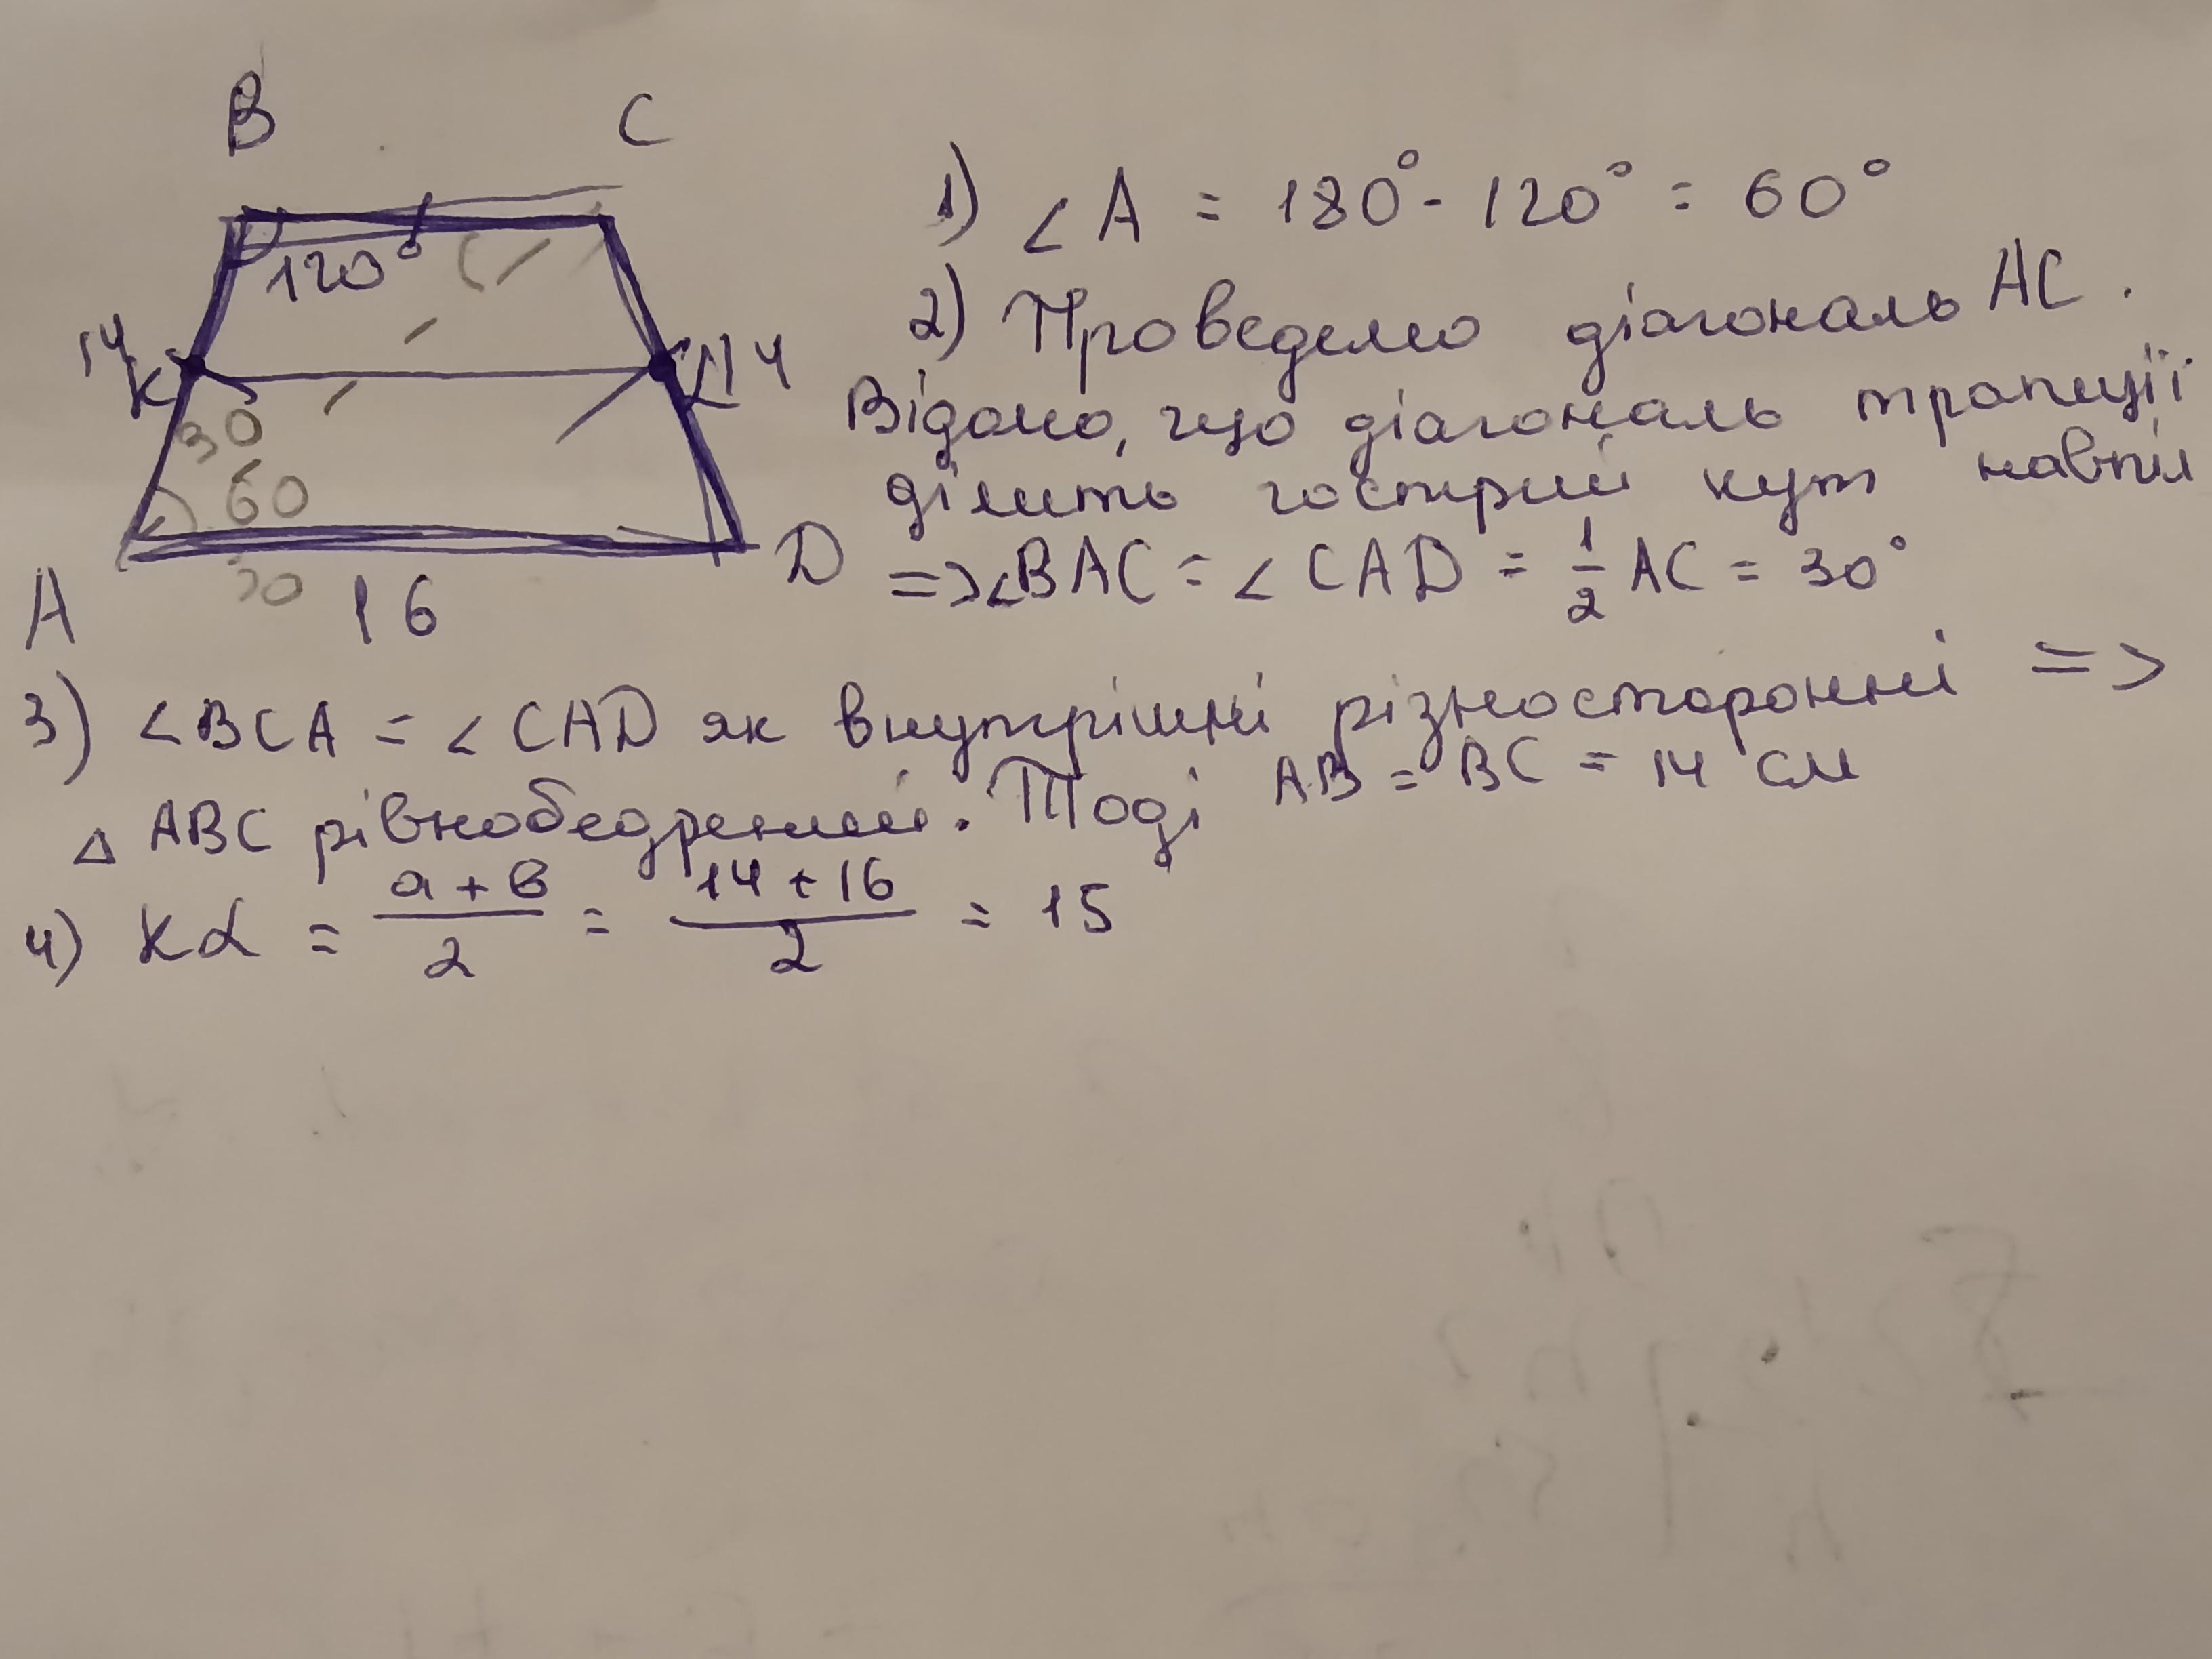 B
C
120°
14
K
L
14
30
60
A
30
16
D
1) ∠A = 180° - 120° = 60°
2) Проведемо діагональ AC.
Відомо, що діагональ трапеції
ділить гострий кут навпіл
=> ∠BAC = ∠CAD = 1/2 AC = 30°
3) ∠BCA = ∠CAD як внутрішні різносторонні =>
△ ABC рівнобедрений. Тоді AB = BC = 14 см
4) KL = (a + b)/2 = (14 + 16)/2 = 15